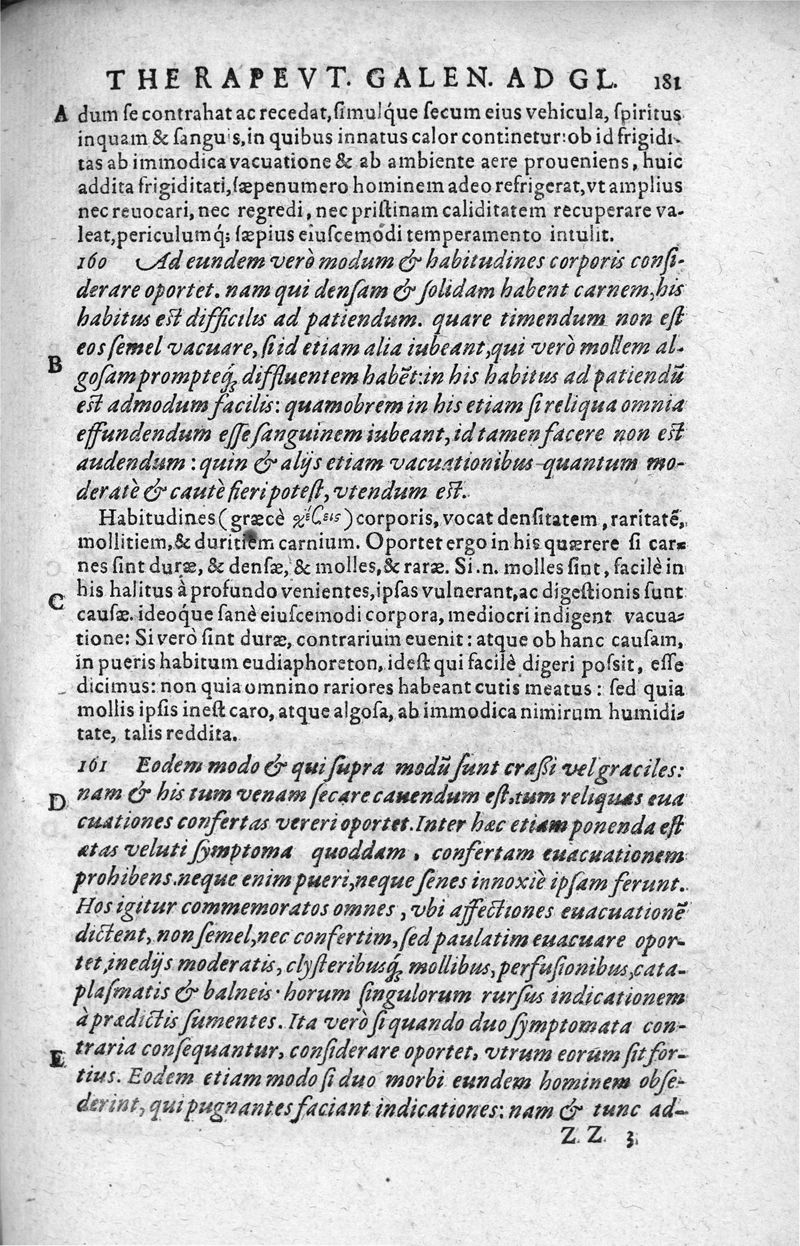 THERAPEVT. GALEN. AD GL. 181
A dum ſe contrahat ac recedat, ſimulq́ue ſecum eius vehicula, ſpiritus
inquam & ſanguis, in quibus innatus calor continetur: ob id frigidi-
tas ab immodica vacuatione & ab ambiente aere proueniens, huic
addita frigiditati, ſæpenumero hominem adeo refrigerat, vt amplius
nec reuocari, nec regredi, nec priſtinam caliditatem recuperare va-
leat, periculumq́; ſæpius eiuſcemodi temperamento intulit.
160 Ad eundem verò modum & habitudines corporis conſi-
derare oportet. nam qui denſam & ſolidam habent carnem, his
habitus eſt difficilis ad patiendum. quare timendum non eſt
eos ſemel vacuare, ſi id etiam alia iubeant, qui verò mollem al-
B goſam prompteq́; diffluentem habēt: in his habitus ad patiendū
eſt admodum facilis: quamobrem in his etiam ſi reliqua omnia
effundendum eſſe ſanguinem iubeant, id tamen facere non eſt
audendum: quin & alijs etiam vacuationibus quantum mo-
deratè & cautè fieri poteſt, vtendum eſt.
Habitudines (græcè χέσεις) corporis, vocat denſitatem, raritatē,
mollitiem, & duritiem carnium. Oportet ergo in his quærere ſi car-
nes ſint duræ, & denſæ, & molles, & raræ. Si .n. molles ſint, facilè in
C his halitus à profundo venientes, ipſas vulnerant, ac digeſtionis ſunt
cauſæ. ideoq́ue ſanè eiuſcemodi corpora, mediocri indigent vacua-
tione: Si verò ſint duræ, contrarium euenit: atque ob hanc cauſam,
in pueris habitum eudiaphoreton, ideſt qui facilè digeri poſsit, eſſe
dicimus: non quia omnino rariores habeant cutis meatus: ſed quia
mollis ipſis ineſt caro, atque algoſa, ab immodica nimirum humidi-
tate, talis reddita.
161 Eodem modo & qui ſupra modū ſunt craſſi vel graciles:
D nam & his tum venam ſecare cauendum eſt, tum reliquas eua
cuationes confertas vereri oportet. Inter hæc etiam ponenda eſt
ætas veluti ſymptoma quoddam, confertam euacuationem
prohibens. neque enim pueri, neque ſenes innoxiè ipſam ferunt.
Hos igitur commemoratos omnes, vbi affectiones euacuationē
dictent, non ſemel, nec confertim, ſed paulatim euacuare opor-
tet, inedijs moderatis, clyſteribusq́; mollibus, perfuſionibus, cata-
plaſmatis & balneis. horum ſingulorum rurſus indicationem
à prædictis ſumentes. Ita verò ſi quando duo ſymptomata con-
E traria conſequantur, conſiderare oportet, vtrum eorum ſit for-
tius. Eodem etiam modo ſi duo morbi eundem hominem obſe-
derint, qui pugnantes faciant indicationes: nam & tunc ad-
ZZ 3